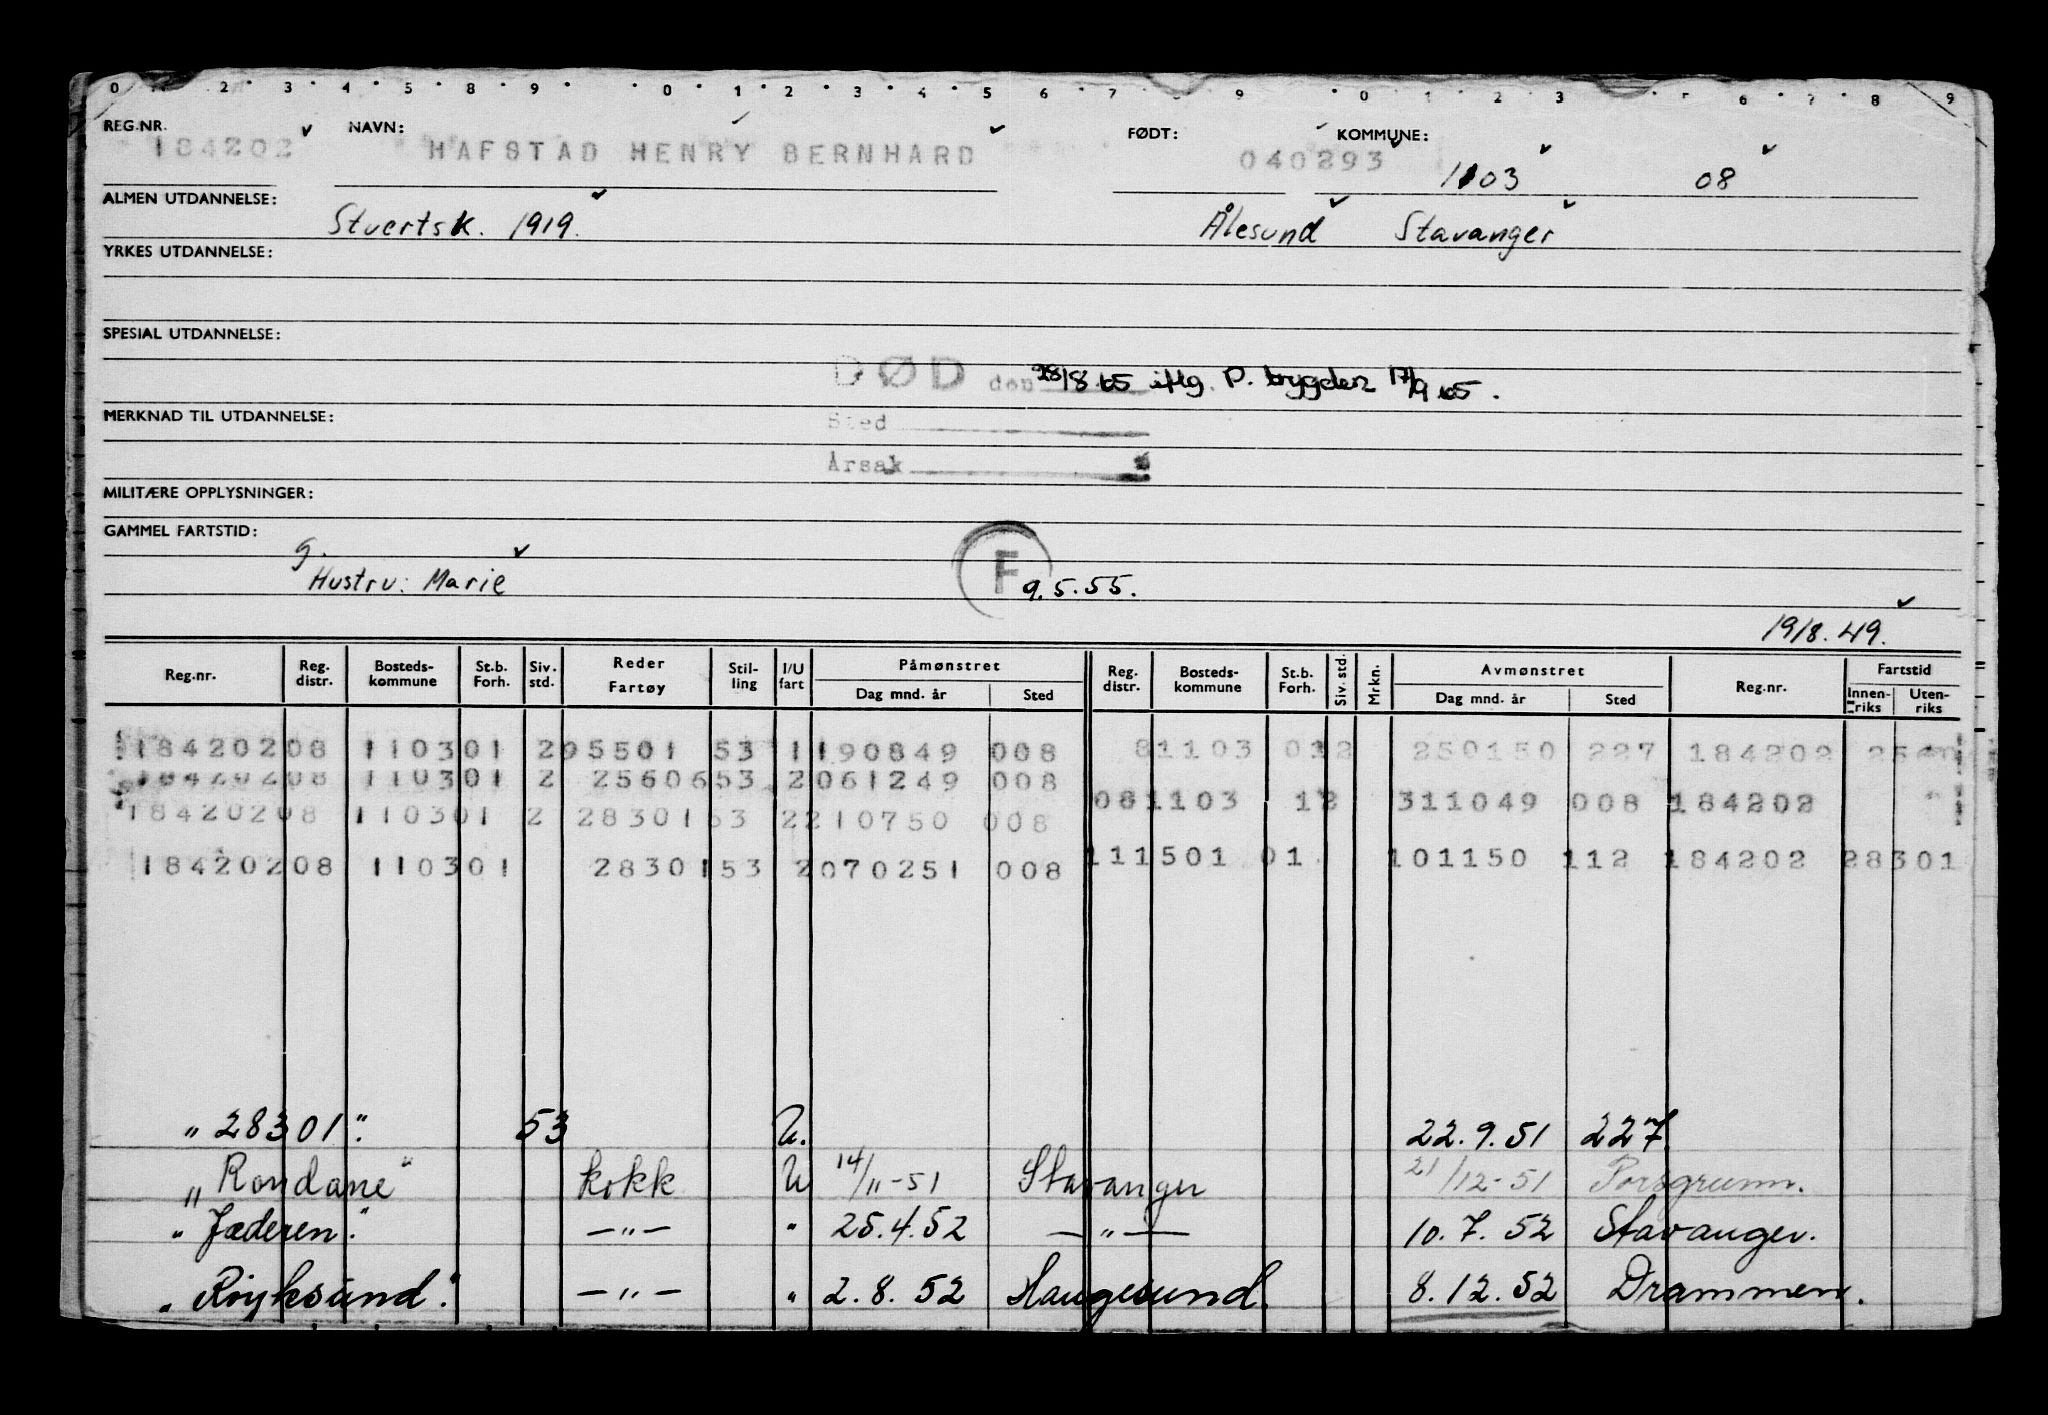 0 2 3 4 5 8 9 0 1 2 3 4 5 6 7 9 0 1 2 3 6 7 8 9
REG.NR. NAVN: FØDT: KOMMUNE:
184202 HAFSTAD HENRY BERNHARD 040293 1103 08
ALMEN UTDANNELSE: Stuertsk. 1919. Ålesund Stavanger
YRKES UTDANNELSE:
SPESIAL UTDANNELSE:
DØD den 28/8.65 iflg. P. trygden 17/9.65.
MERKNAD TIL UTDANNELSE: Sted
Årsak
MILITÆRE OPPLYSNINGER:
GAMMEL FARTSTID:
g.
Hustru: Marie F 9.5.55.
19/8.49.
Reg.nr. Reg. distr. Bosteds- kommune St.b. Forh. Siv. std. Reder Fartøy Stil- ling I/U fart Påmønstret Dag mnd. år Sted Reg. distr. Bosteds- kommune St.b. Forh. Siv. std. Mrkn. Avmønstret Dag mnd. år Sted Reg.nr. Fartstid Innen- riks Uten- riks
18420208 110301 205501 53 1190849 008 81103 012 250150 227 184202
18420208 110301 2 2560653 2061249 008
081103 12 311049 008 184202
18420208 110301 2 2830153 2210750 008
111501 01 101150 112 184202 28301
18420208 110301 2830153 2070251 008
"28301". 53 U. 22.9.51 227
"Rondane" kokk U 14/11-51 Stavanger 21/12-51 Porsgrunn.
"Jæderen". —"— " 25.4.52 —"— 10.7.52 Stavanger.
"Røyksund". —"— " 2.8.52 Haugesund. 8.12.52 Drammen.